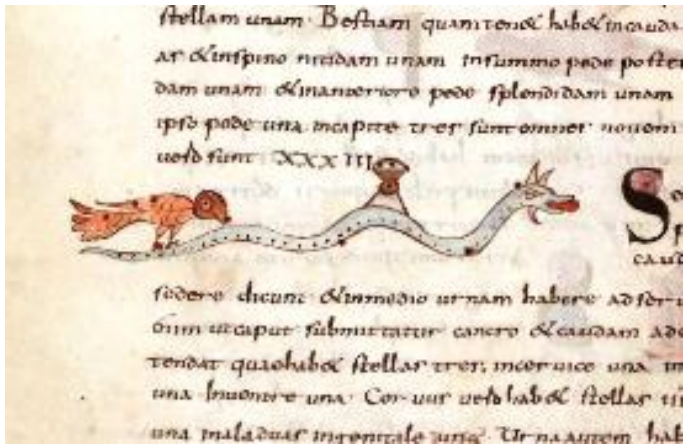 stellam unam. Bestiam quam tenet habet incauda
ar & inspino nitidam unam insummo pede poster
dam unam & inanteriore pede splendidam unam
ipso pede una incapite tres sunt omnes novem
vero sunt XXXIII
S
caud
sedere dicunt & inmedio urnam habere ad ser
ut caput submittatur cancro & caudam ad
tendat quae habet stellas tres, incervice una in
una inventre una. Corvus vero habet stellas
una in genitale una. Urna autem hab